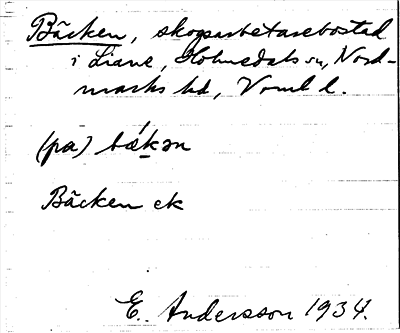 Bäcken, skogsarbetarebostad
i Liane, Holmedals sn, Nord-
marks hd, Vrml l.
(pa) bǽkən
Bäcken ek
E. Andersson 1934.